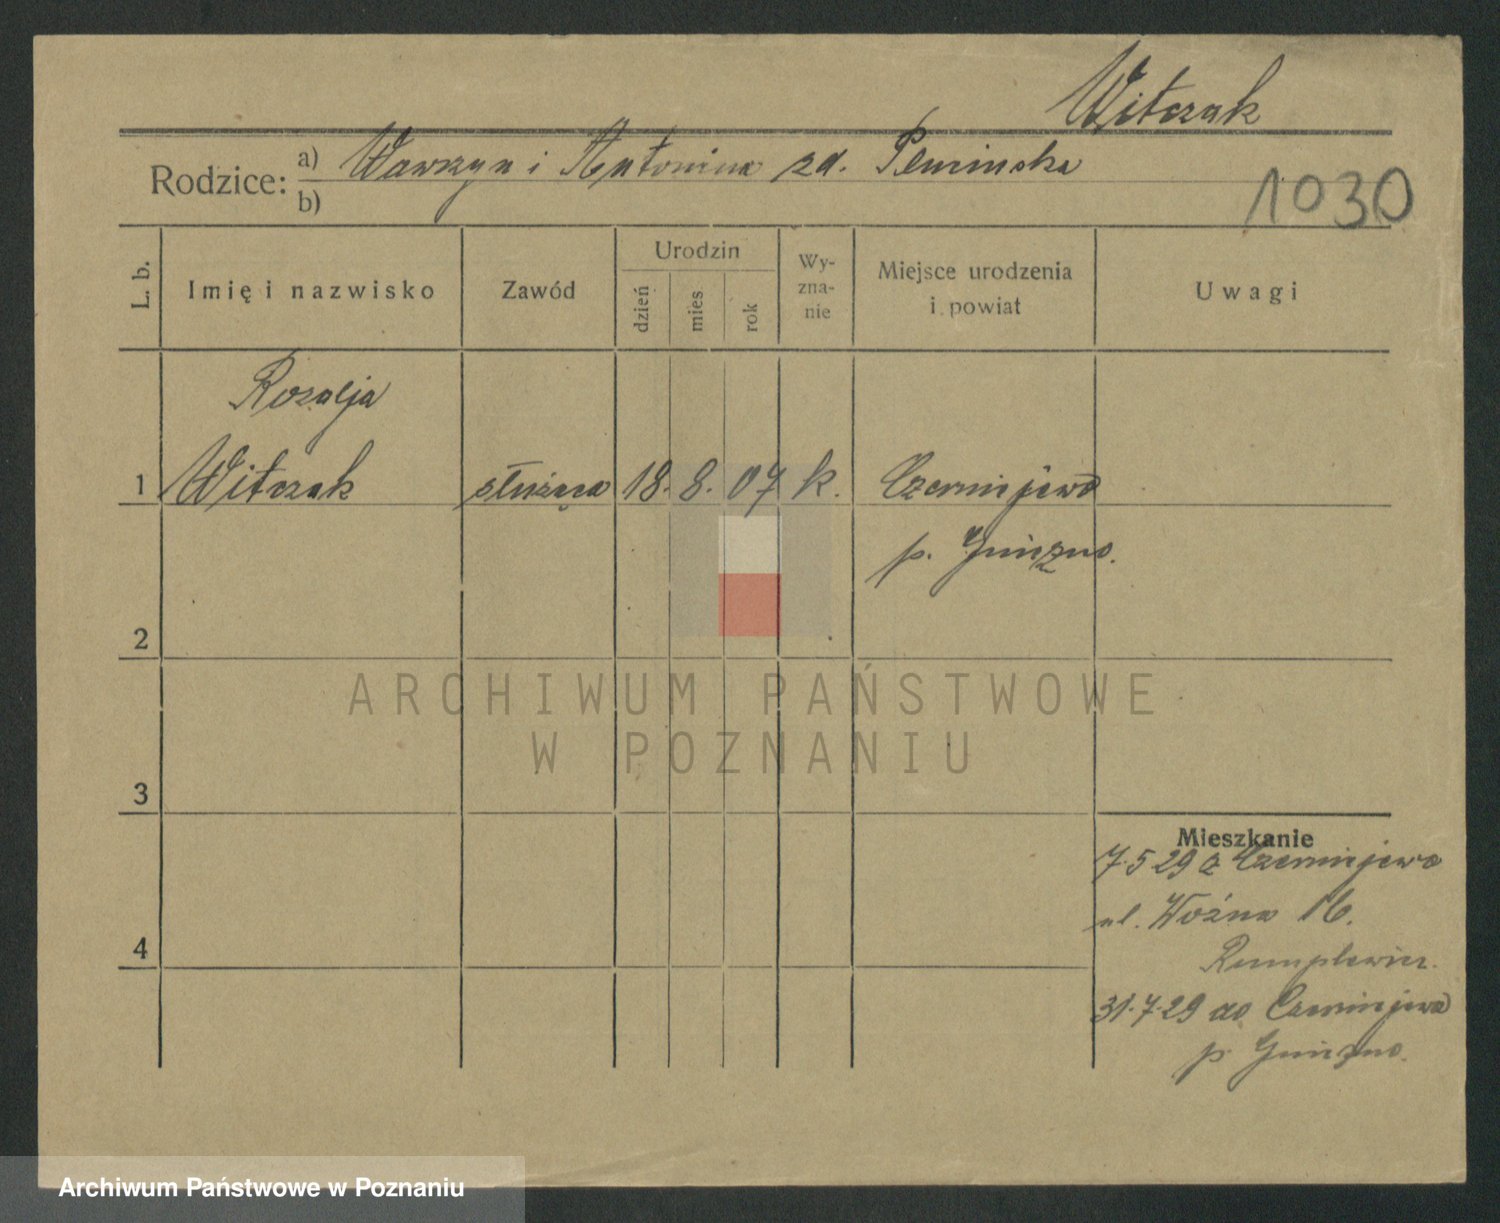 Witczak
Rodzice: a) Wawrzyn i Antonina zd.
b)
1030
L. b.
Imię i nazwisko
Zawód
Urodzin
dzień
mies
rok
Wy-
zna-
nie
Miejsce urodzenia
i powiat
Uwagi
Rozalja
1 Witczak służąca 18. 8. 07 k. Czerniejewo
p. Gniezno.
2
3
4
Mieszkanie
7.5 29 z Czerniejewa
ul. Woźna 16.
31.7.29 do Czerniejewa
p. Gniezno.
ARCHIWUM PAŃSTWOWE
W POZNANIU
Archiwum Państwowe w Poznaniu